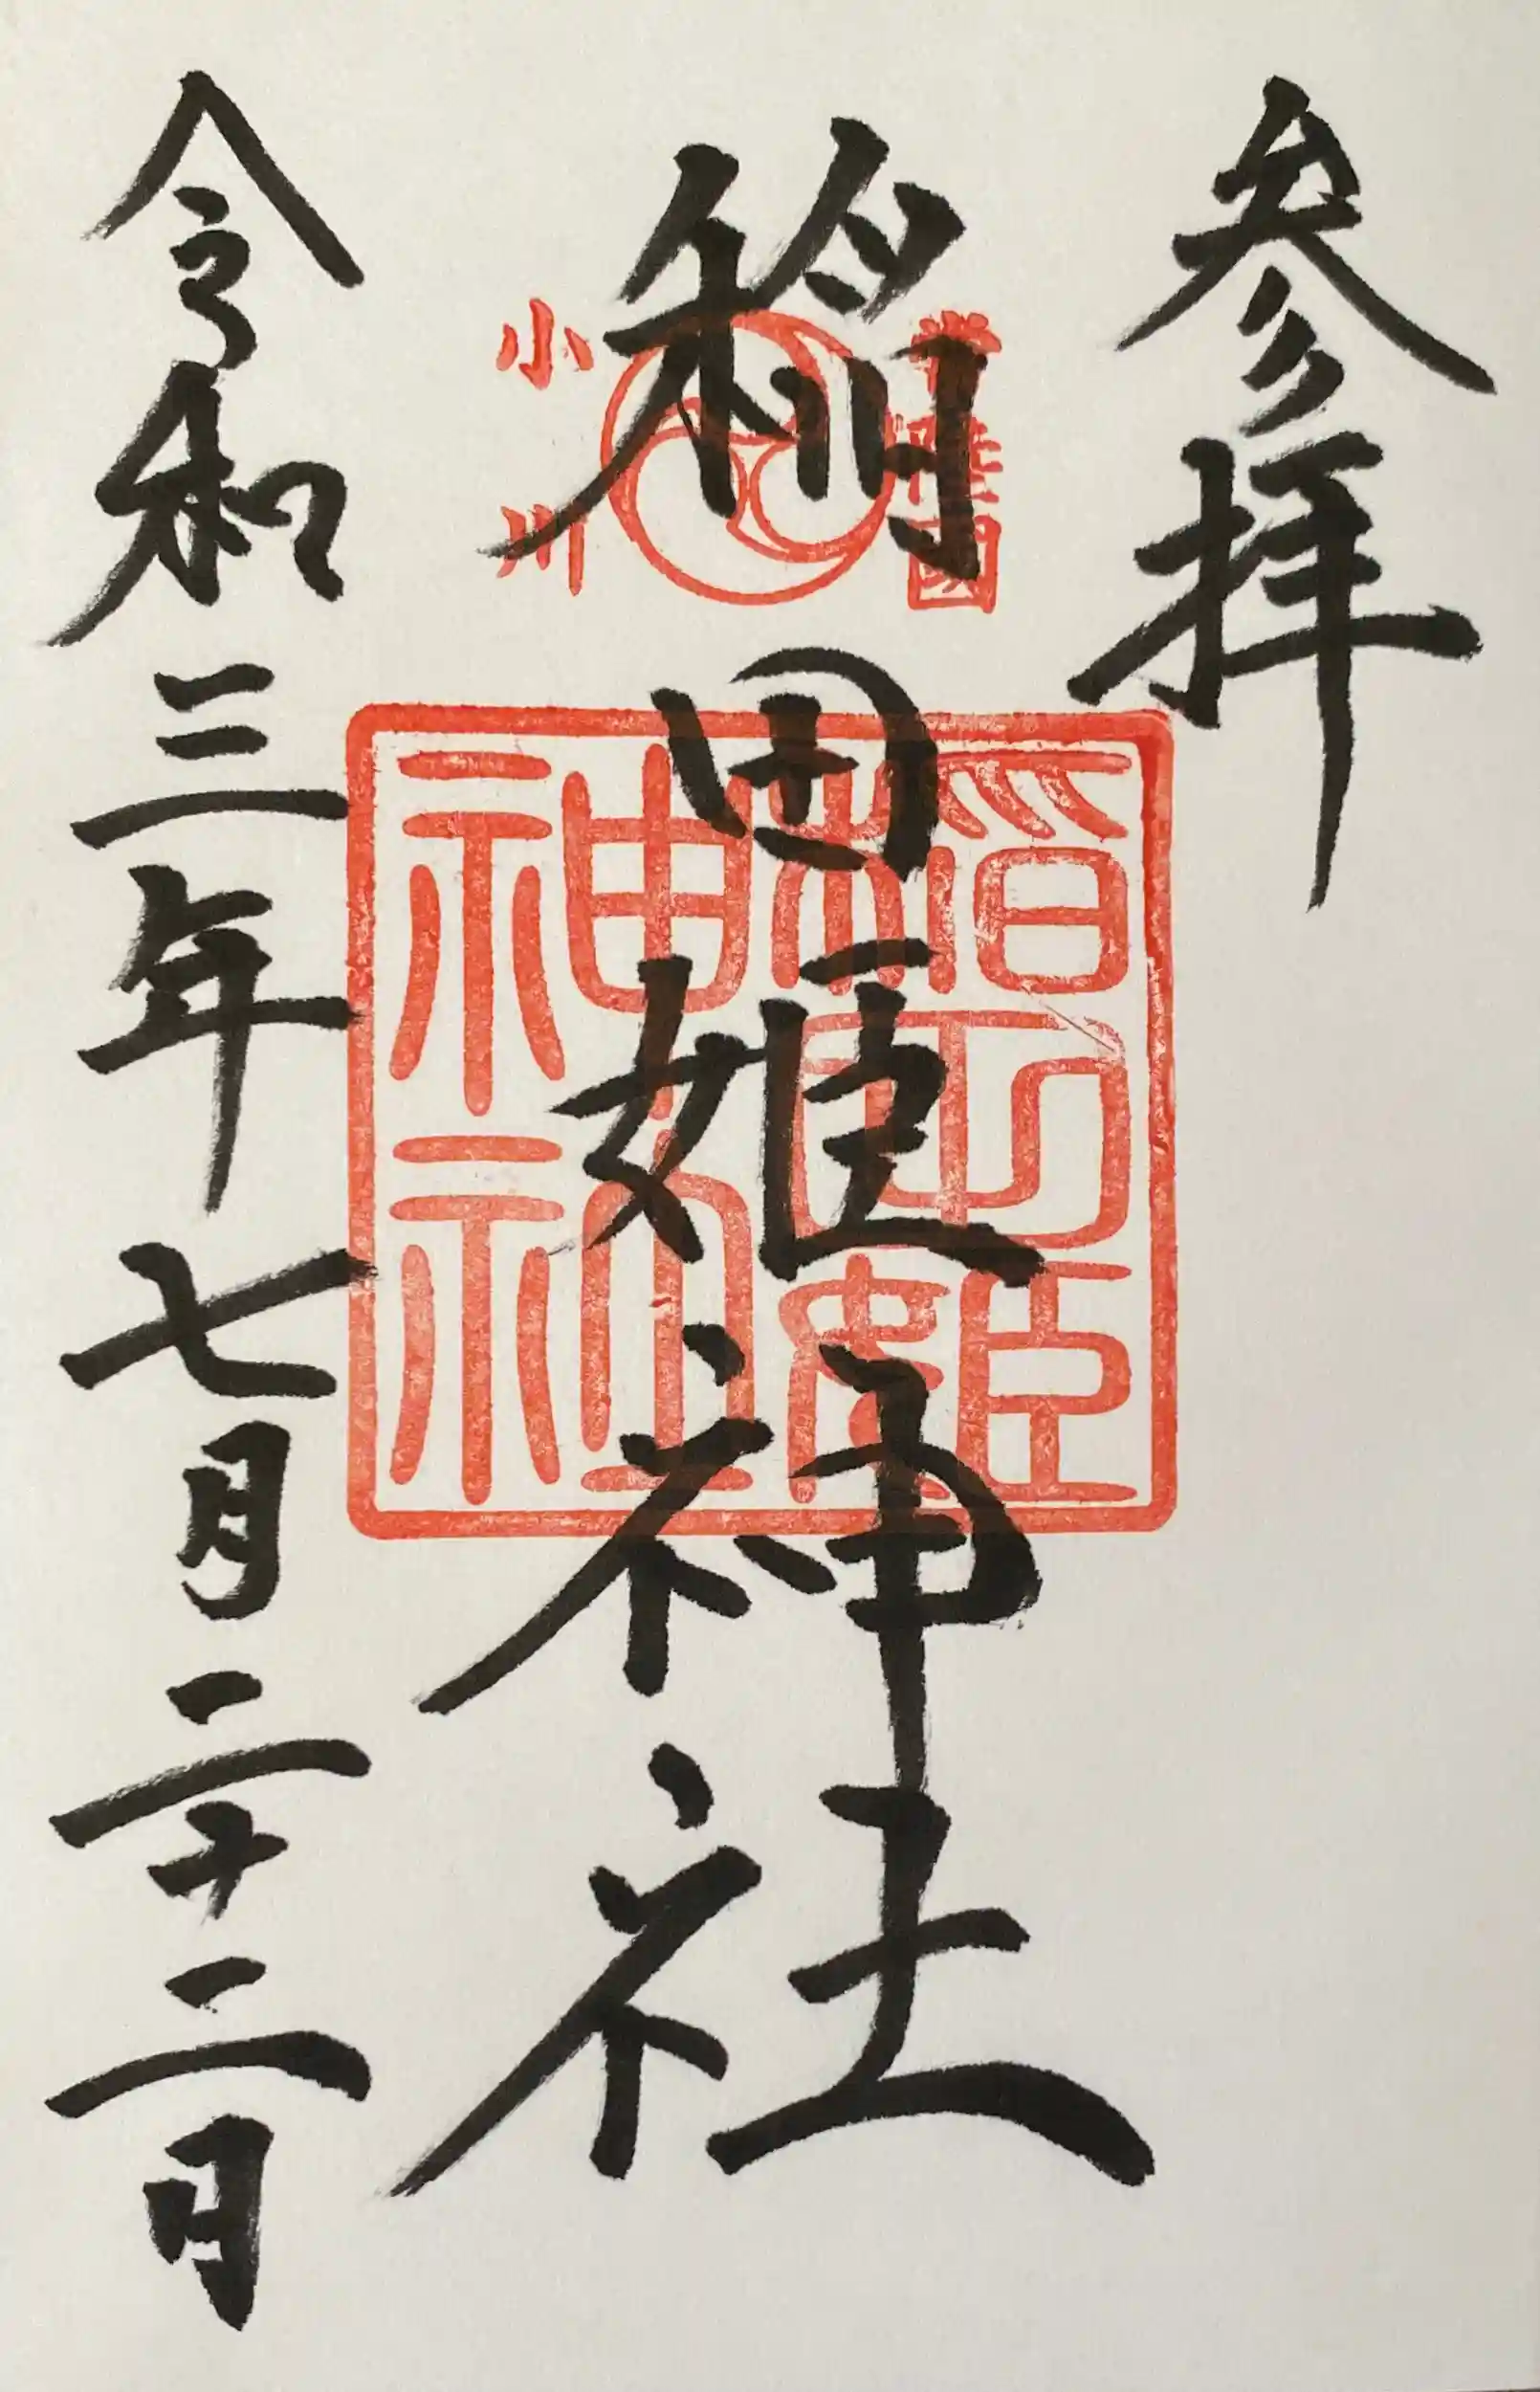 参拝
常陸國
稲田姫神社
小川
稲田姫
神社
令和三年七月二十二日